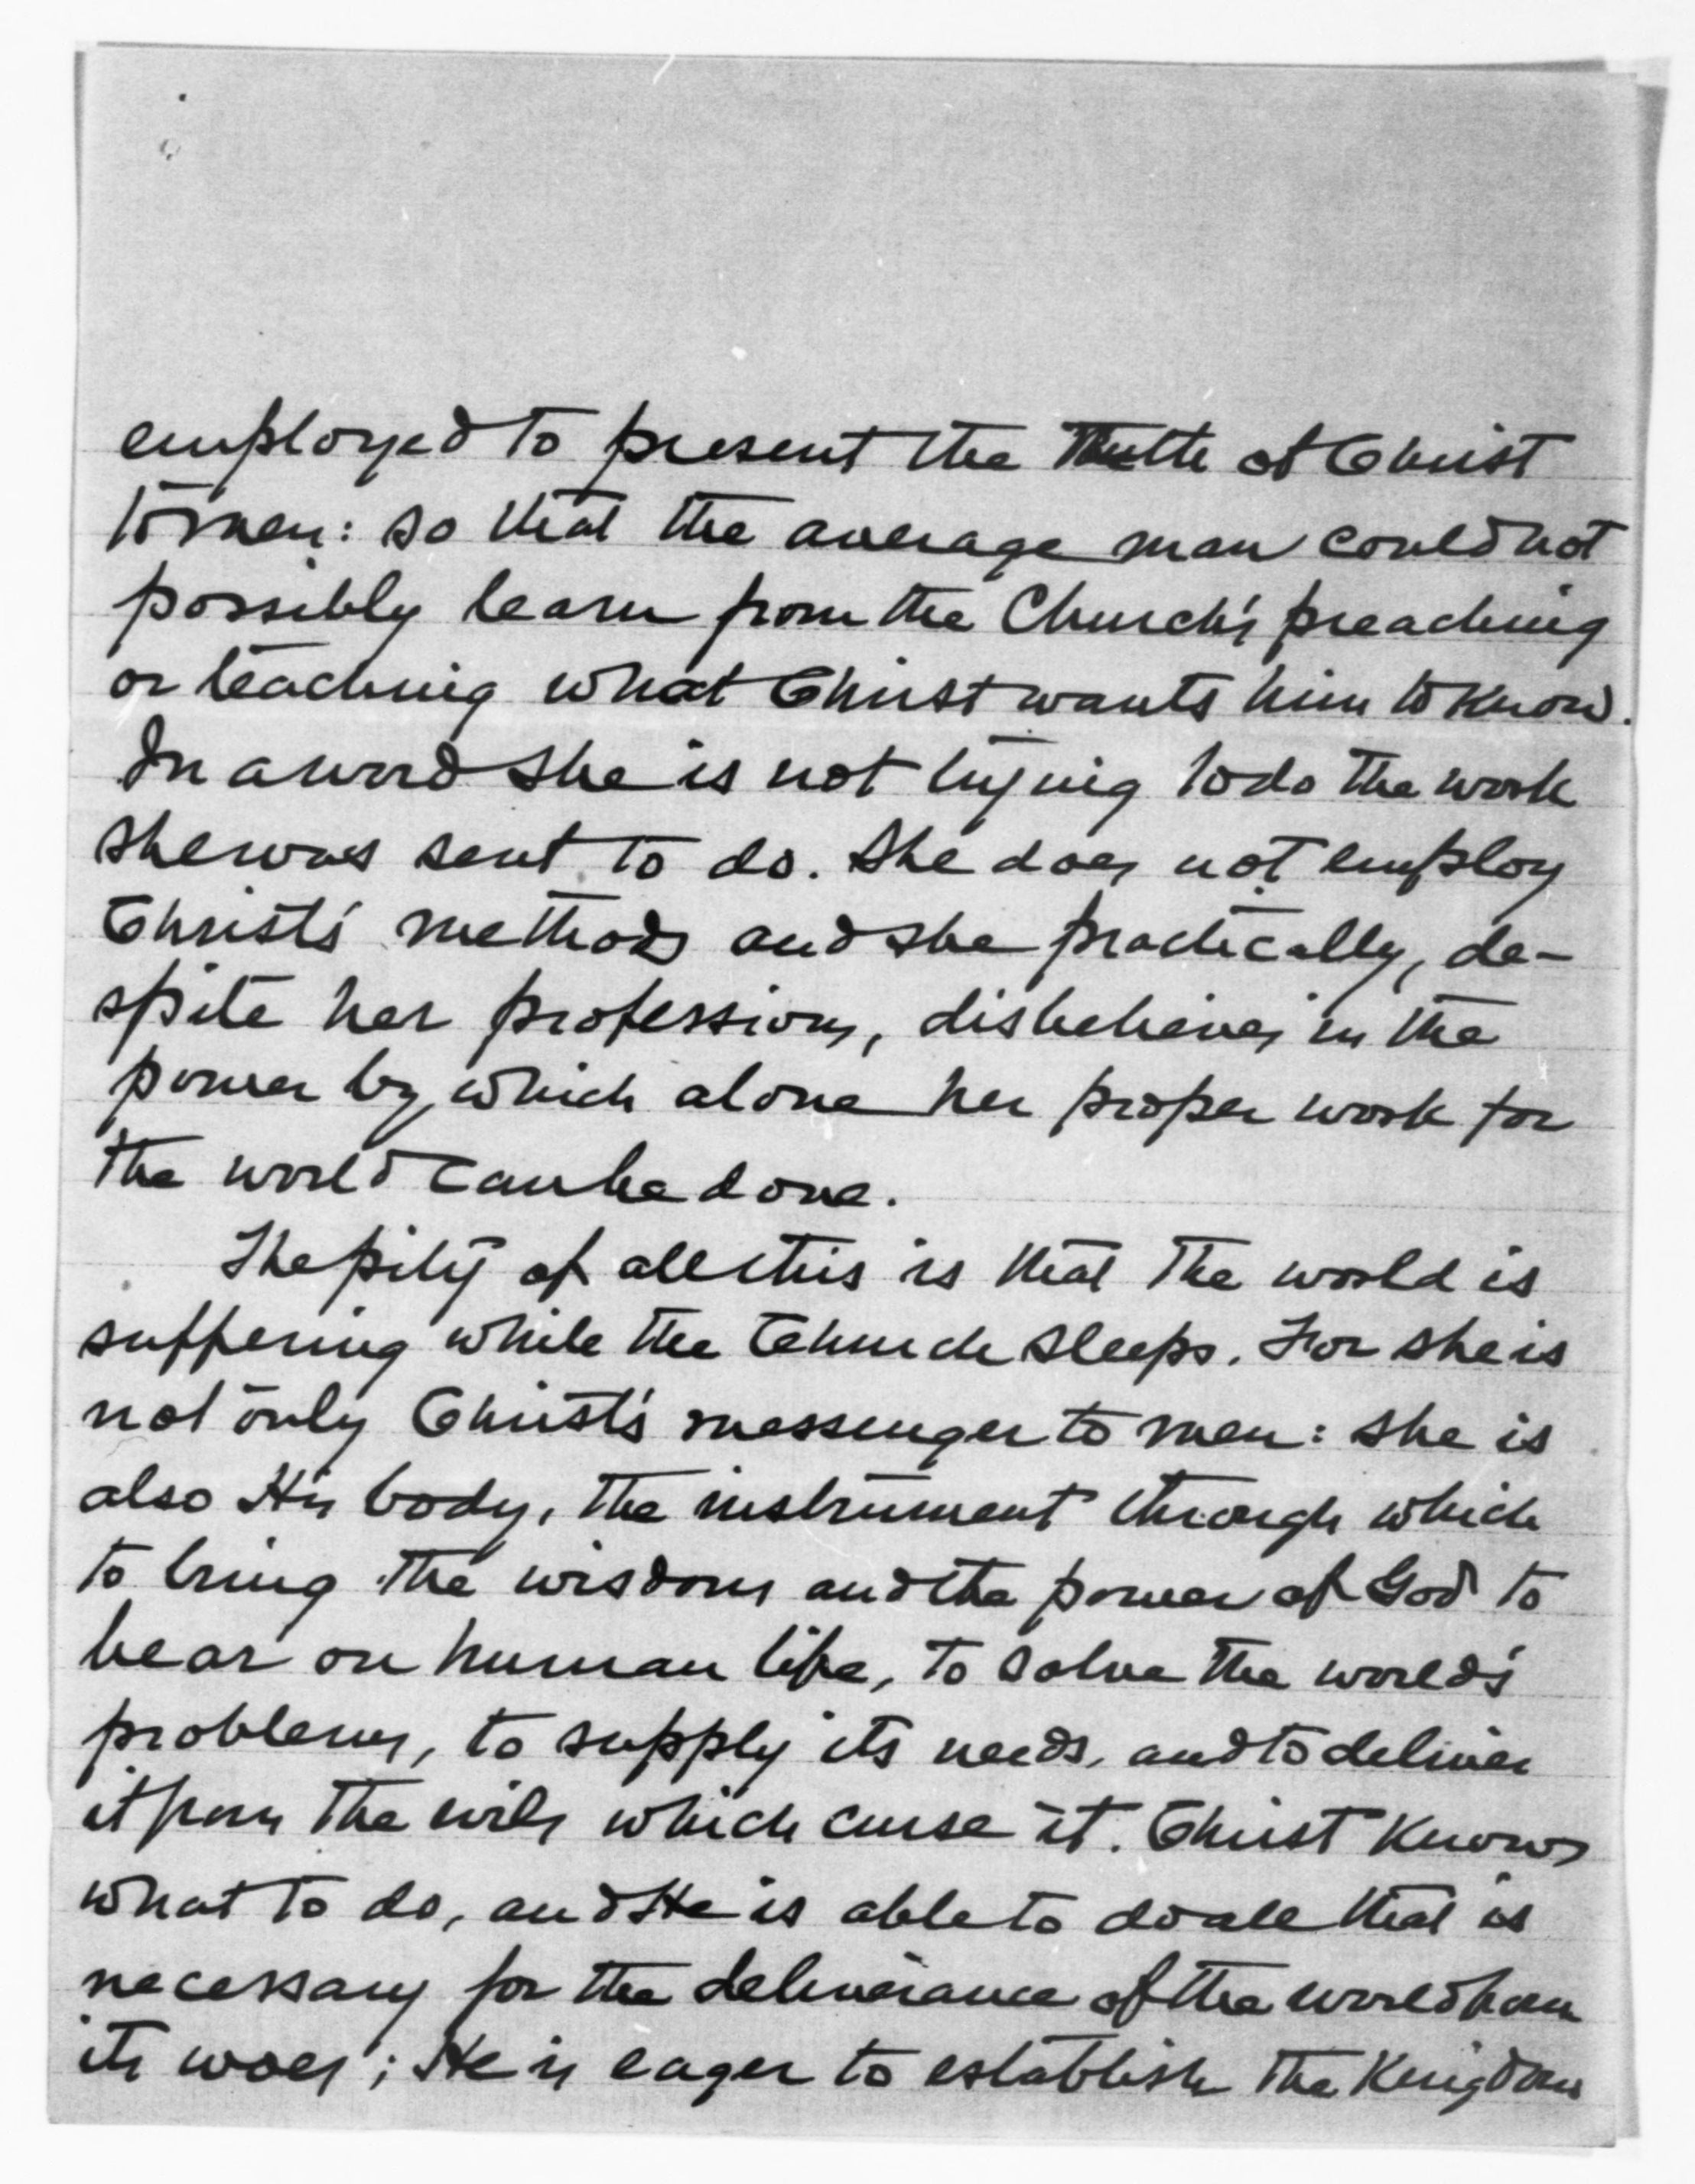 employed to present the Truth of Christ
to men: so that the average man could not
possibly learn from the Church's preaching
or teaching what Christ wants him to know.
In a word she is not trying to do the work
she was sent to do. She does not employ
Christ's methods and she practically, de-
spite her professions, disbelieves in the
power by which alone her proper work for
the world can be done.
The pity of all this is that the world is
suffering while the Church sleeps. For she is
not only Christ's messenger to men: she is
also His body, the instrument through which
to bring the wisdom and the power of God to
bear on human life, to solve the world's
problems, to supply its needs, and to deliver
it from the evils which curse it. Christ knows
what to do, and He is able to do all that is
necessary for the deliverance of the world from
its woes; He is eager to establish the Kingdom